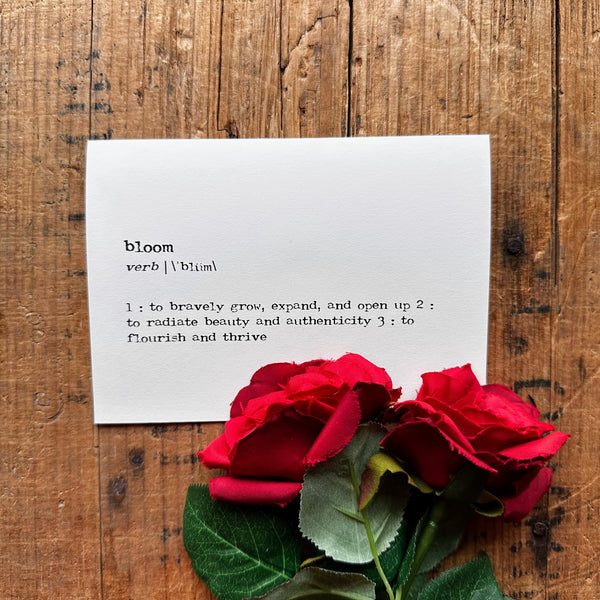 bloom
verb | \ˈblüm\
1 : to bravely grow, expand, and open up 2 :
to radiate beauty and authenticity 3 : to
flourish and thrive